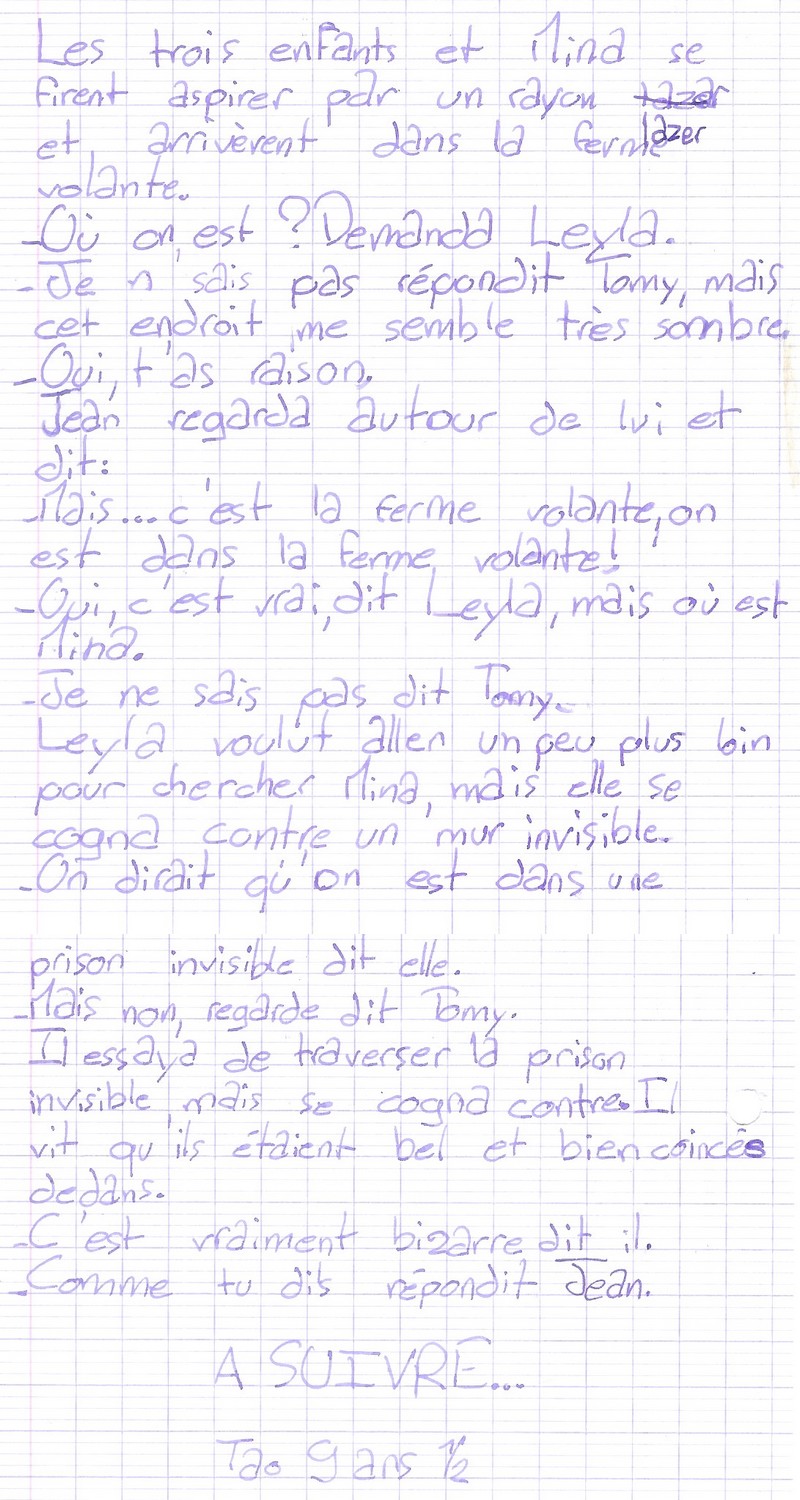 Les trois enfants et Mina se
firent aspirer par un rayon tazer
lazer
et arrivèrent dans la ferme
volante.
-Où on est ? Demanda Leyla.
-Je n sais pas répondit Tomy, mais
cet endroit me semble très sombre.
-Oui, t'as raison.
Jean regarda autour de lui et
dit:
-Mais... c'est la ferme volante, on
est dans la ferme volante!
-Oui, c'est vrai, dit Leyla, mais où est
Mina.
-Je ne sais pas dit Tomy.
Leyla voulut aller un peu plus loin
pour chercher Mina, mais elle se
cogna contre un mur invisible.
-On dirait qu'on est dans une
prison invisible dit elle.
-Mais non, regarde dit Tomy.
Il essaya de traverser la prison
invisible, mais se cogna contre. Il
vit qu'ils étaient bel et bien coincés
dedans.
-C'est vraiment bizarre dit il.
-Comme tu dis répondit Jean.
A SUIVRE...
Tao 9 ans 1/2